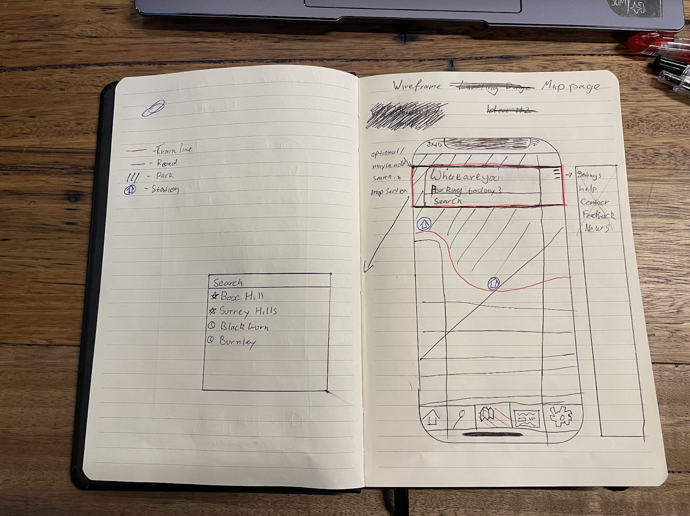 - Train line
- Road
- Park
- Station
Search
Box Hill
Surrey Hills
Blackburn
Burnley
Wireframe Landing Page Map page
optional/
search in
map screen
Where are you
Parking today?
Search
Settings
Help
Contact
Feedback
News